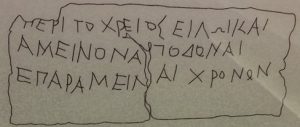 ΠΕΡΙ ΤΟ ΧΡΕΙΟΣ ΕΙ ΛΩΙΚΑΙ
ΑΜΕΙΝΟΝ ΑΠΟΔΟΝΑΙ
ΕΠΑΡΑΜΕΙΝΑΙ ΧΡΟΝΩΝ